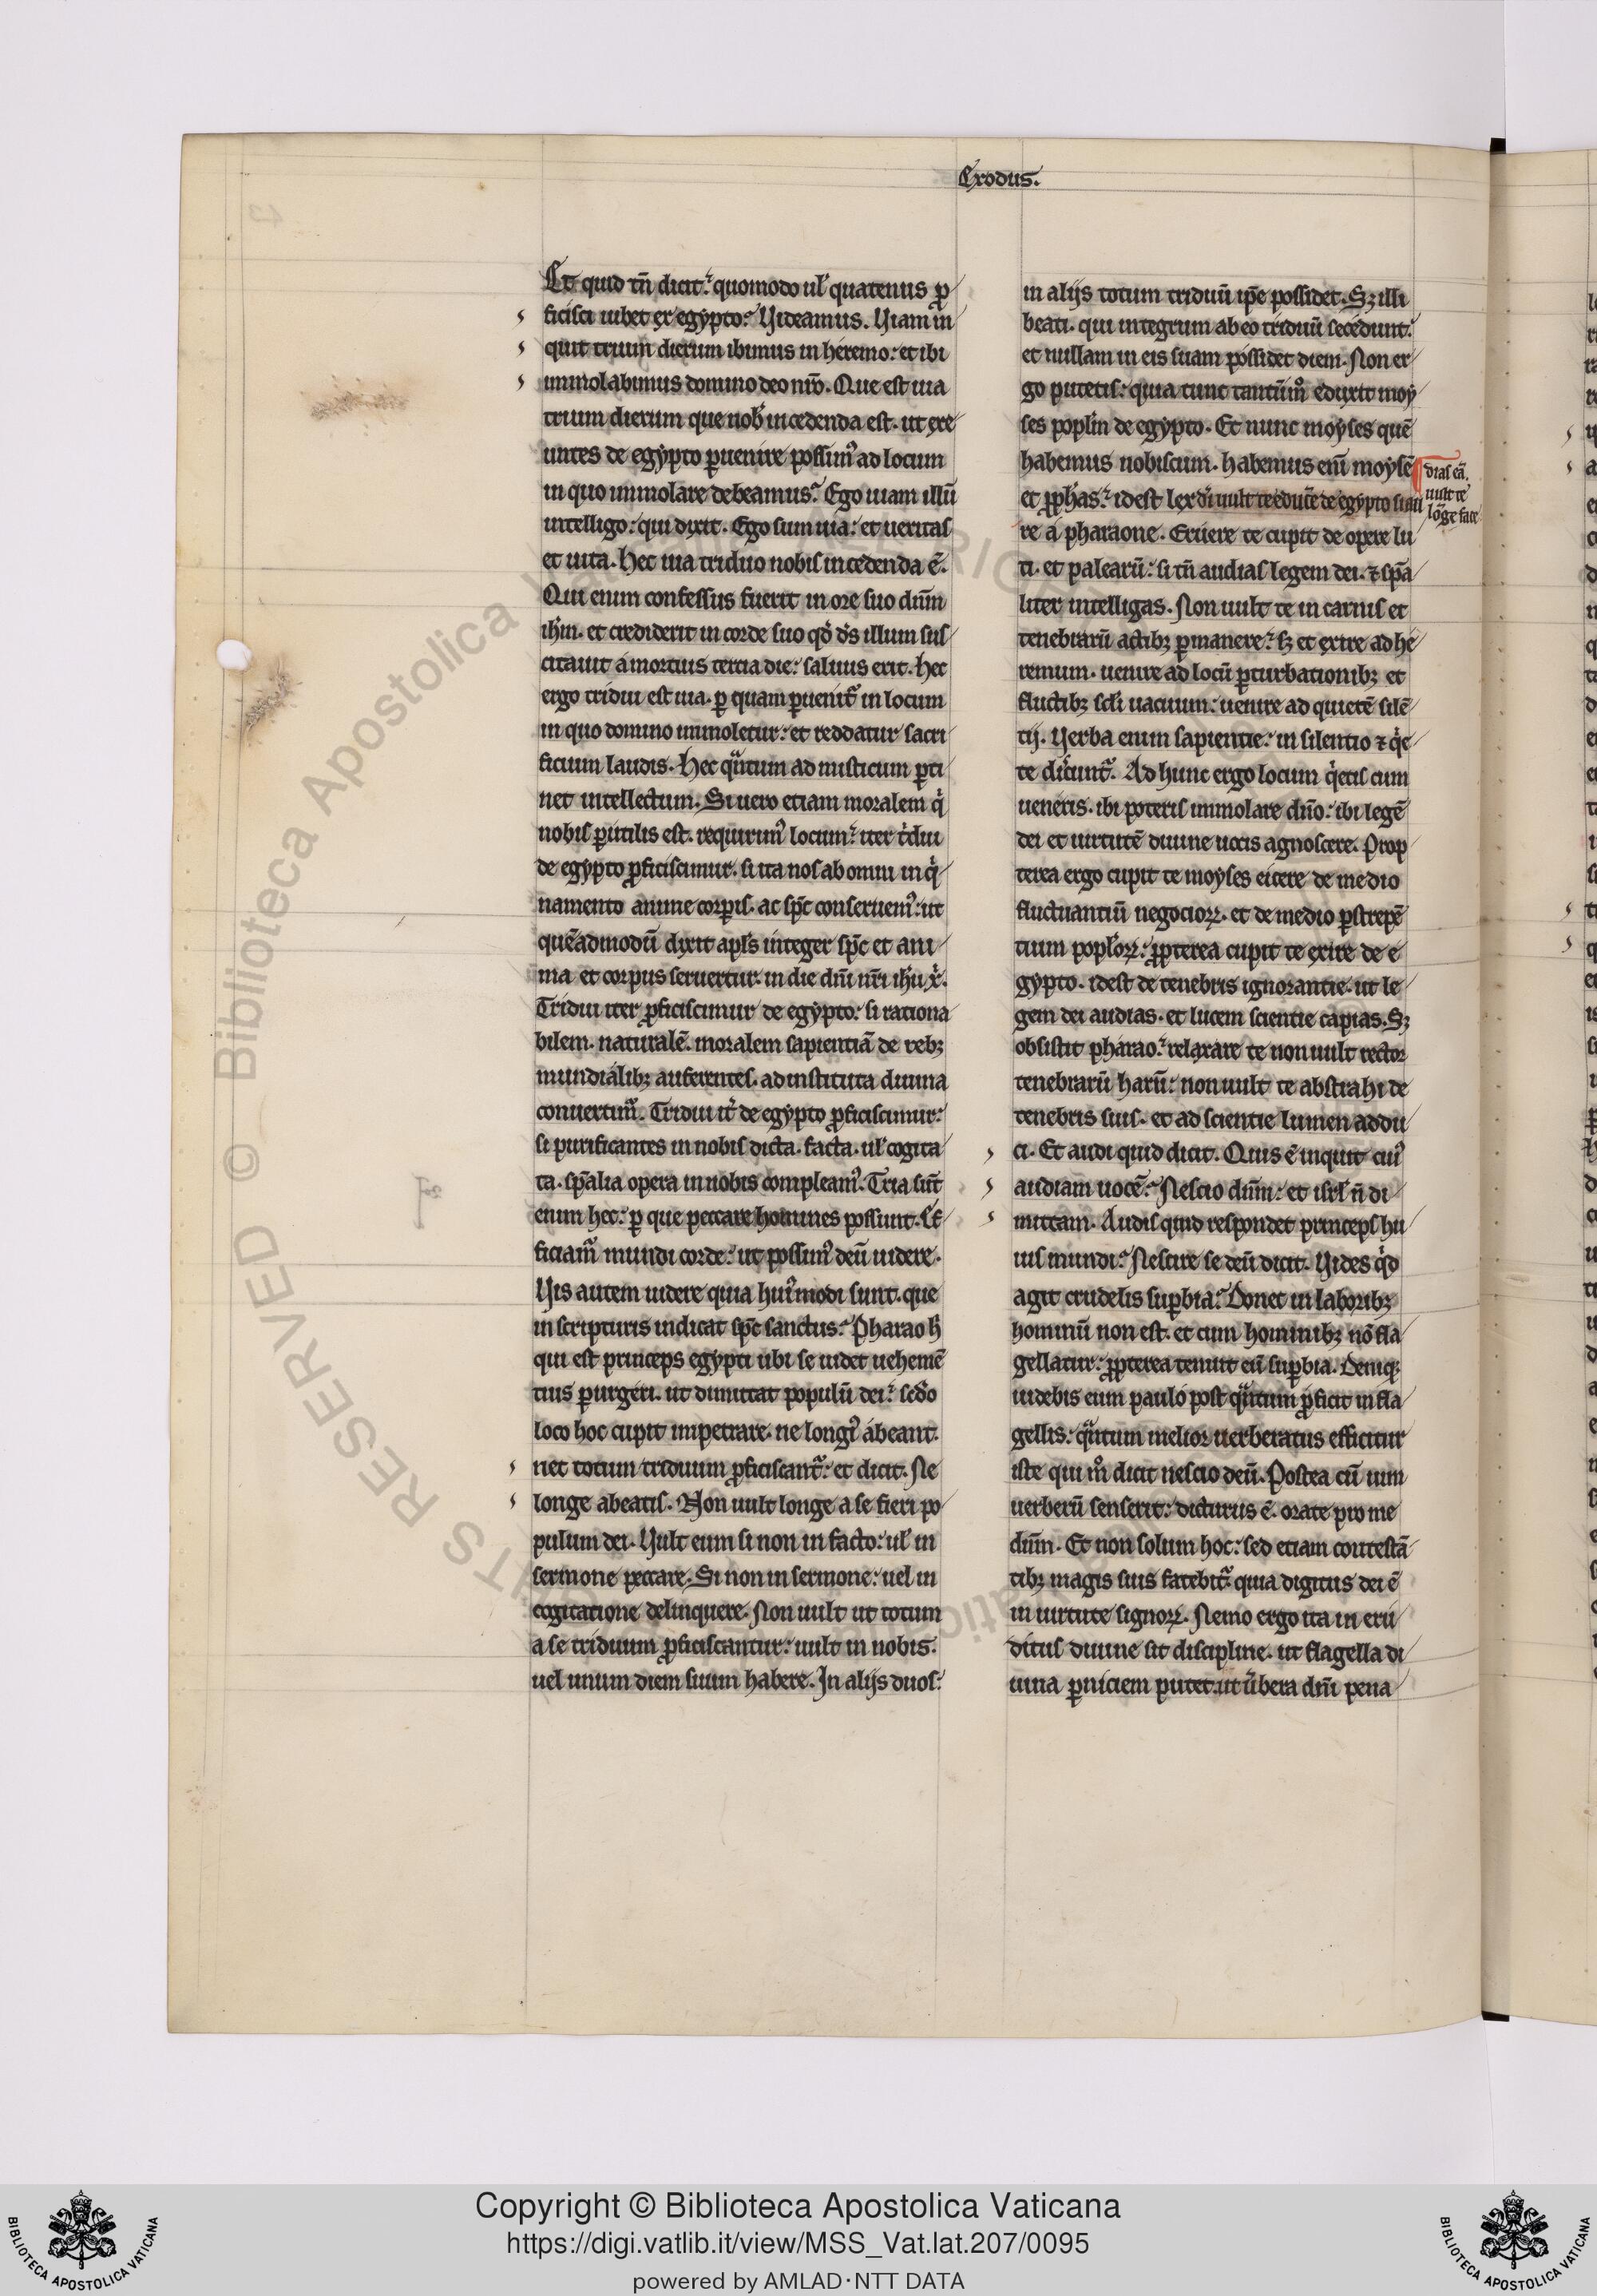 Exodus.
Et quid tñ dicit? quomodo ul' quatenus p̄
ficisci iubet ex egypto? Uideamus. Uiam in
quit trium dierum ibimus in heremo: et ibi
immolabimus domino deo nr̄o. Que est uia
trium dierum que nob' incedenda est. ut exe
untes de egypto ꝑuenire possim᷒ ad locum
in quo immolare debeamus? Ego uiam illū
intelligo: qui dixit. Ego sum uia: et ueritas
et uita. Hec uia triduo nobis incedenda ē.
Qui enim confessus fuerit in ore suo dn̄m
ih̄m. et crediderit in corde suo qđ d̄s illum sus
citauit a mortuis tercia die: saluus erit. Hec
ergo tridui est uia. ꝑ quam ꝑuenit᷑ in locum
in quo domino immoletur: et reddatur sacri
ficium laudis. Hec qͣntum ad misticum ꝑti
net intellectum. Si uero etiam moralem qͥ
nobis ꝑutilis est. requirim᷒ locum: iter tͥdui
de egypto ꝓficiscimur. si ita nos ab omni inqͥ
namento anime corꝑis. ac sp̄c conseruem᷒: ut
quēadmodū dixit apl's integer sp̄c et ani
ma et corpus seruetur. in die dn̄i nr̄i ih̄u xͥ.
Tridui iter ꝓficiscimur de egypto: si rationa
bilem. naturalē. moralem sapientiā de reb;
mundialib; auferentes. ad instituta diuina
conuertim᷑. Tridui it᷑ de egypto ꝓficiscimur:
si purificantes in nobis dicta. facta. ul' cogita
ta. sp̄alia opera in nobis compleam᷒. Tria sūt
enim hec: ꝑ que peccare homines possunt. Ef
ficiam᷑ mundi corde: ut possim᷒ deū uidere.
Uis autem uidere quia hui᷒modi sunt. que
in scripturis indicat sp̄c sanctus? Pharao h̄
qui est princeps egypti ubi se uidet uehemē
tius ꝑurgeri. ut dimittat populū dei: sed̄o
loco hoc cupit impetrare. ne longi᷒ abeant.
net totum triduum ꝓficiscant᷑: et dicit. Ne
longe abeatis. Non uult longe a se fieri po
pulum dei. Uult eum si non in facto: ul' in
sermone peccare. Si non in sermone: uel in
cogitatione delinquere. Non uult ut totum
a se triduum ꝓficiscantur: uult in nobis.
uel unum diem suum habere. In alijs duos:
in alijs totum triduū ip̄e possidet. S; illi
beati. qui integrum ab eo triduū secedunt:
et nullam in eis suam possidet diem. Non er
go putetis: quia tunc tantūm᷒ eduxit moy
ses popl'm de egypto. Et nunc moyses quē
habemus nobiscum. habemus eni᷒ moysē
et ꝓph'as: idest lex di᷒ uult te educ̄e de egypto si au
dias eā.
uult te
lōge face
re a pharaone. Eruere te cupit de opere lu
ti. et palearū: si tn̄ audias legem dei. ⁊ sp̄a
liter intelligas. Non uult te in carnis et
tenebrarū actib; ꝑmanere: s; et exire ad he
remum. uenire ad locū ꝑturbationib; et
fluctib; sc̄li uacuum: uenire ad quietē silē
tij. Uerba enim sapientie: in silentio ⁊ qͥe
te dicunt᷑. Ad hunc ergo locum qͥetis cum
ueneris. ibi poteris immolare dn̄o: ibi legē
dei et uirtutē diuine uocis agnoscere. Prop
terea ergo cupit te moyses eicere de medio
fluctuantiū negocioꝝ. et de medio ꝑstrepē
tium popl'oꝝ: ꝓpterea cupit te exire de e
gypto. idest de tenebris ignorantie. ut le
gem dei audias. et lucem scientie capias. S;
obsistit pharao: relaxare te non uult rector
tenebrarū harū: non uult te abstrahi de
tenebris suis. et ad scientie lumen addu
ci. Et audi quid dicit. Quis ē inquit cui᷒
audiam uocē? Nescio dn̄m: et isrl' n̄ di
mittam. Audis quid respondet princeps hu
ius mundi? Nescire se deū dicit. Uides qͥd
agit crudelis suꝑbia? Donec in laborib;
hominū non est. et cum hominib; nō fla
gellatur: ꝓpterea tenuit eū suꝑbia. Deniq;
uidebis eum paulo post qͣntum ꝓficit in fla
gellis: qͣntum melior uerberatus efficitur
iste qui m᷒ dicit nescio deū. Postea cū uim
uerberū senserit: dicturus ē. orate pro me
dn̄m. Et non solum hoc: sed etiam contestā
tib; magis suis fatebit᷑: quia digitus dei ē
in uirtute signoꝝ. Nemo ergo ita in eru
ditus diuine sit discipline. ut flagella di
uina ꝑniciem putet. ut ūbera dn̄i pena
Copyright © Biblioteca Apostolica Vaticana
https://digi.vatlib.it/view/MSS_Vat.lat.207/0095
powered by AMLAD·NTT DATA